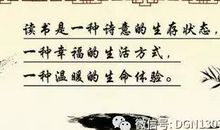 读书是一种诗意的生存状态,
一种幸福的生活方式,
一种温暖的生命体验。
微信号: DGN130